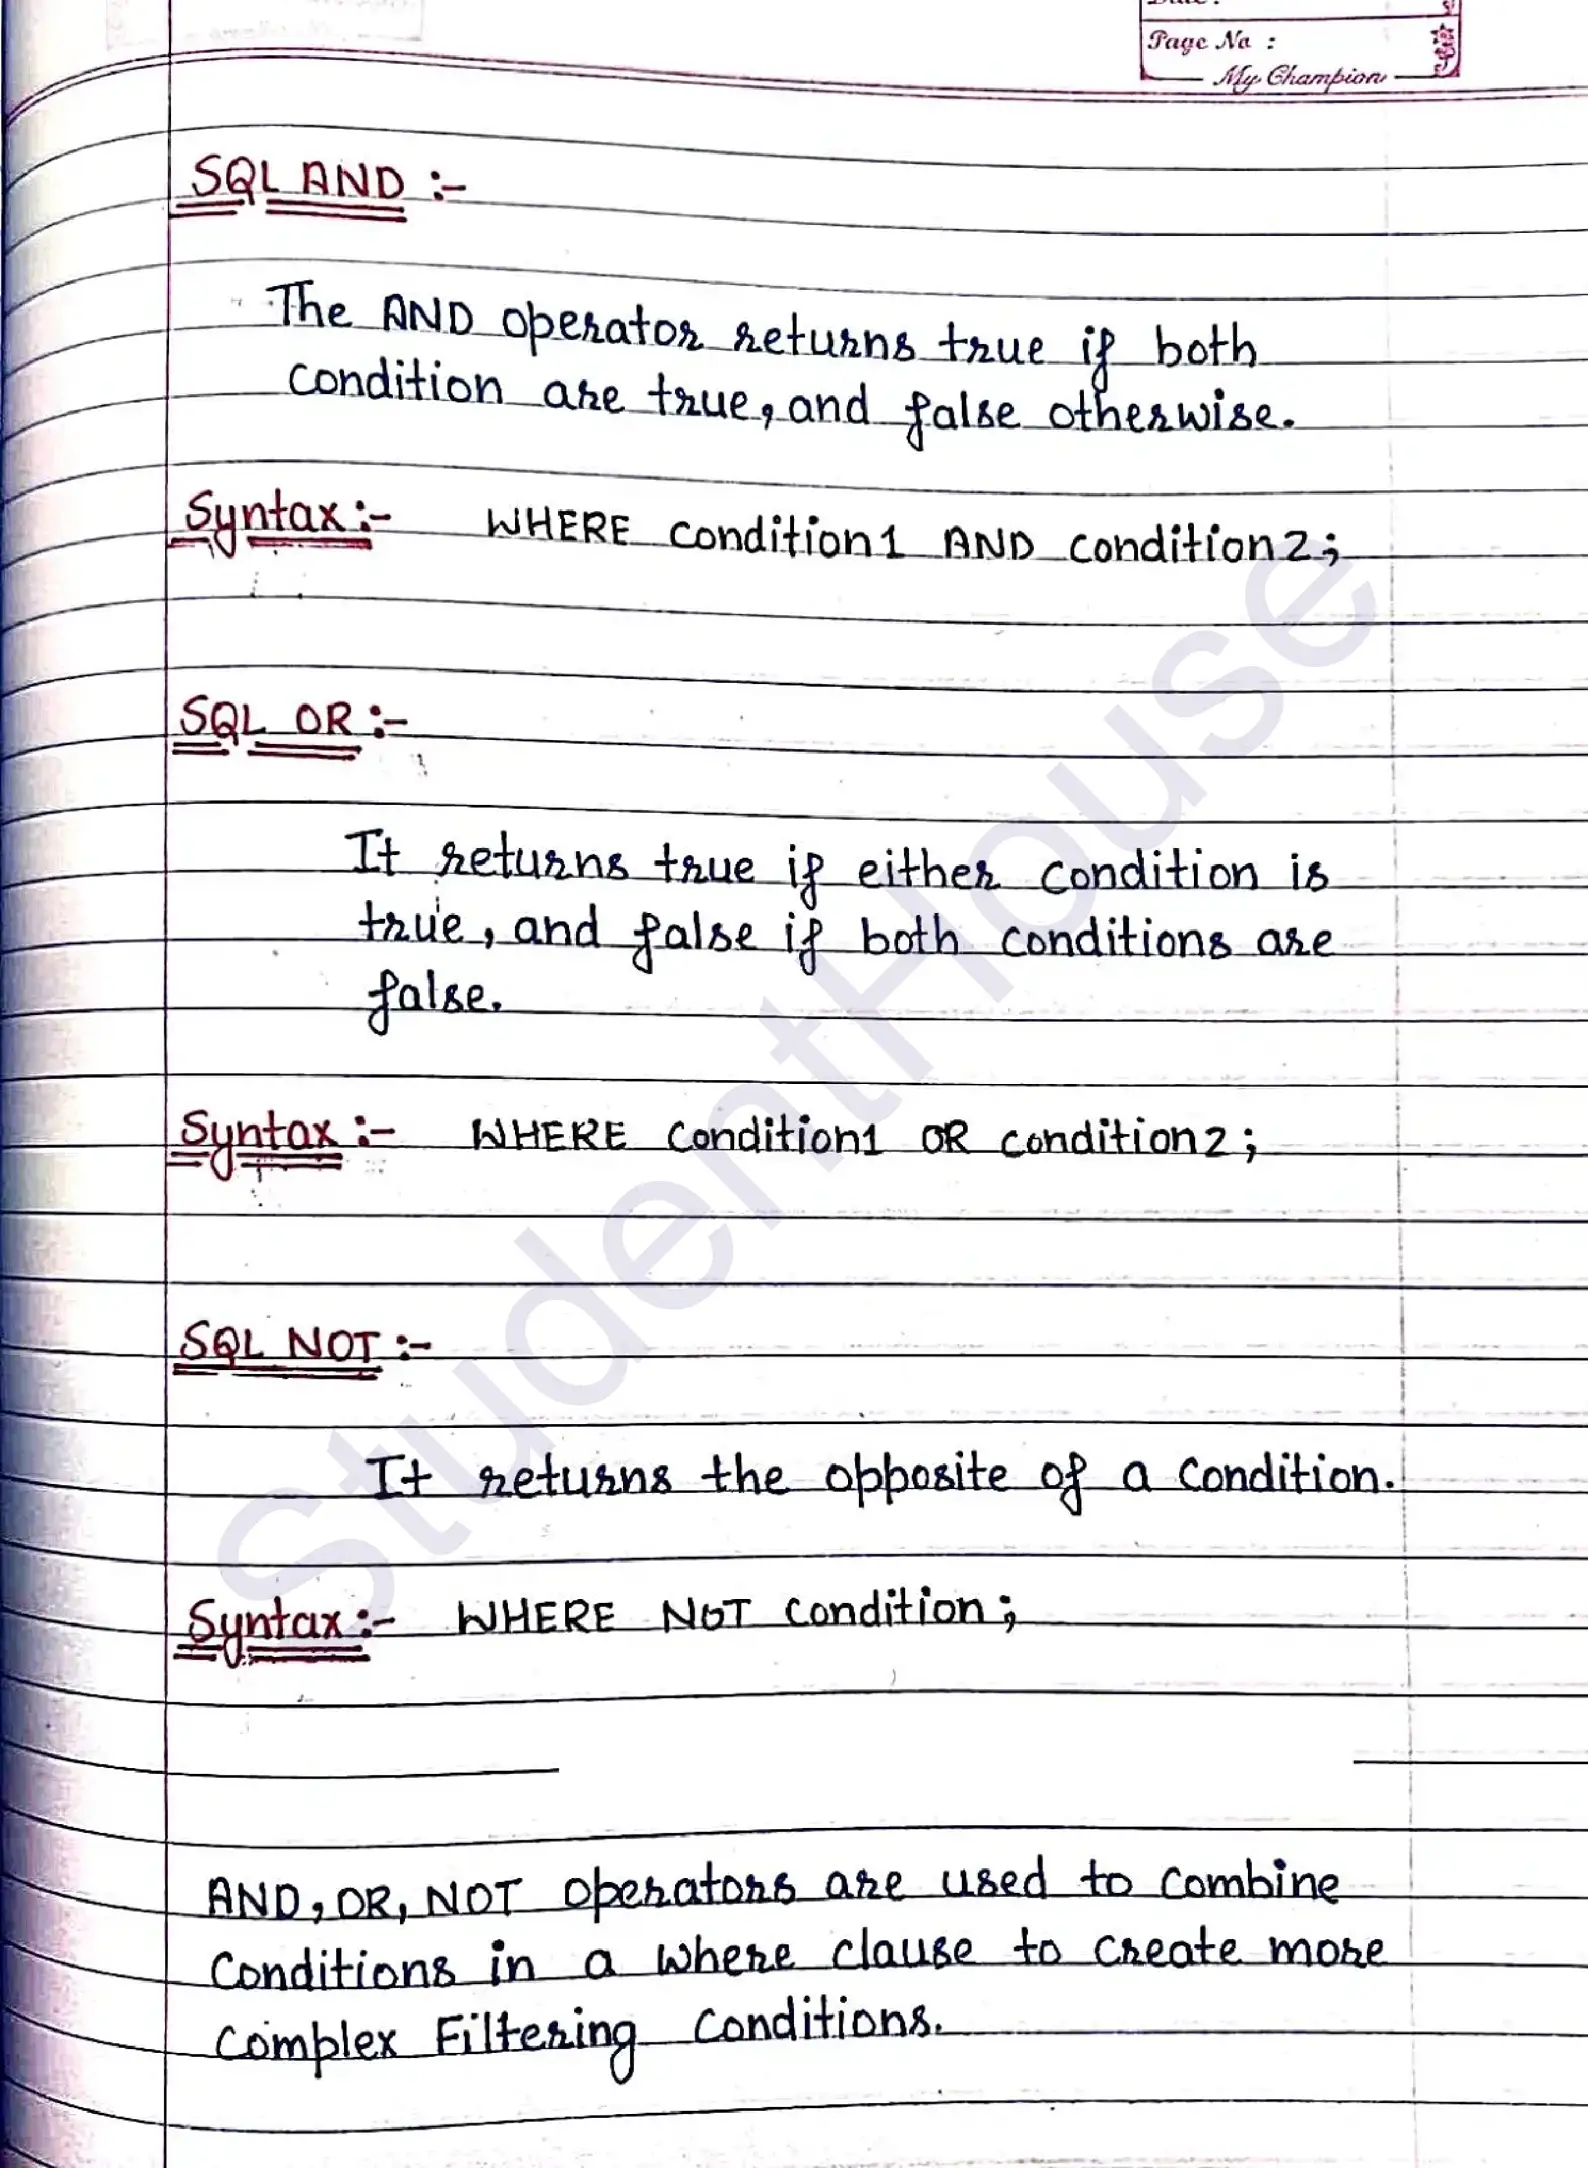 Page No :
My Champion
SQL AND :-
The AND operator returns true if both
condition are true, and false otherwise.
Syntax :- WHERE condition1 AND condition2;
SQL OR :-
It returns true if either condition is
true, and false if both conditions are
false.
Syntax :- WHERE Condition1 OR condition2;
SQL NOT :-
It returns the opposite of a condition.
Syntax :- WHERE NOT Condition;
AND, OR, NOT operators are used to combine
Conditions in a where clause to create more
complex Filtering Conditions.
StudentHouse